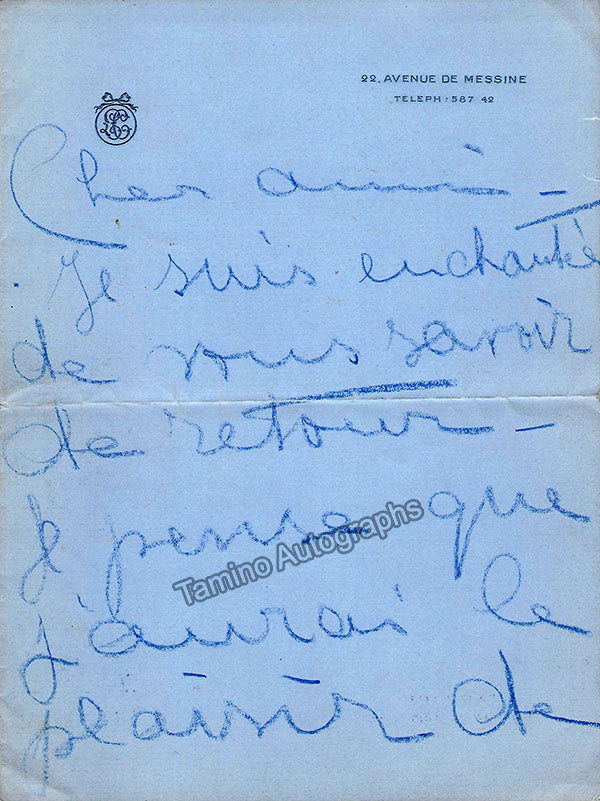 22, AVENUE DE MESSINE
TÉLÉPH : 587 42
Cher ami –
Je suis enchantée
de vous savoir
de retour –
Je pense que
Tamino Autographs
j'aurai le
plaisir de